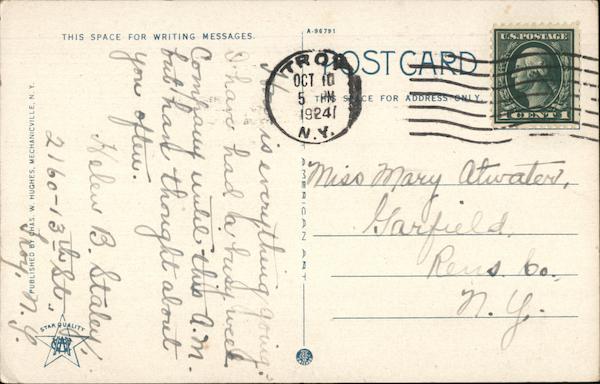 THIS SPACE FOR WRITING MESSAGES.
A-96791
POST CARD
THIS SPACE FOR ADDRESS ONLY.
U.S. POSTAGE
1 CENT 1
TROY
OCT 10
5 PM
1924
N.Y.
is everything going.
I have had a busy week
Company until this A.M.
but have thought about
you often.
Helen B. Staley,
2160-13th St.
Troy, N.Y.
Miss Mary Atwater,
Garfield,
Rens. Co.,
N.Y.
PUBLISHED BY CHAS. W. HUGHES, MECHANICVILLE, N.Y.
STAR QUALITY